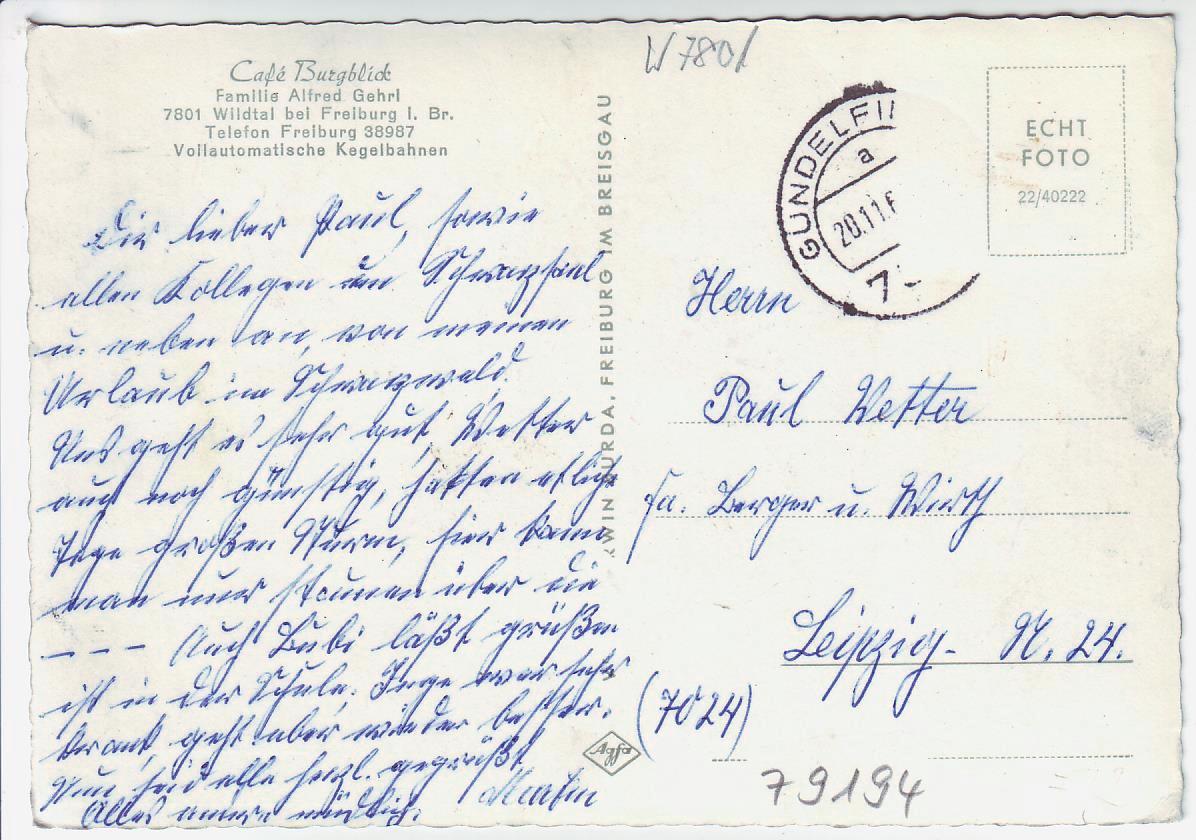 Café Burgblick
Familie Alfred Gehri
7801 Wildtal bei Freiburg i. Br.
Telefon Freiburg 38987
Vollautomatische Kegelbahnen
Dir lieber Paul, sowie
allen Kollegen im
u. neben an, von meinen
Urlaub im Schwarzwald.
Uns geht es sehr gut, Wetter
auch noch günstig, hatten etliche
Tage großen Sturm, hier kann
man nur staunen über die
– – – Auch Bubi läßt grüßen
ist in der Schule. Inge war sehr
krank, geht aber wieder besser.
Nun seid alle herzl. gegrüßt
Alles andere mündlich.
Martin
WIN BURDA, FREIBURG IM BREISGAU
Agfa
W 7801
GUNDELFI
a
20.11.6
7-
ECHT
FOTO
22/40222
Herrn
Paul Vetter
Fa. Berger u. Wirth
Leipzig - N. 24.
(7024)
79194